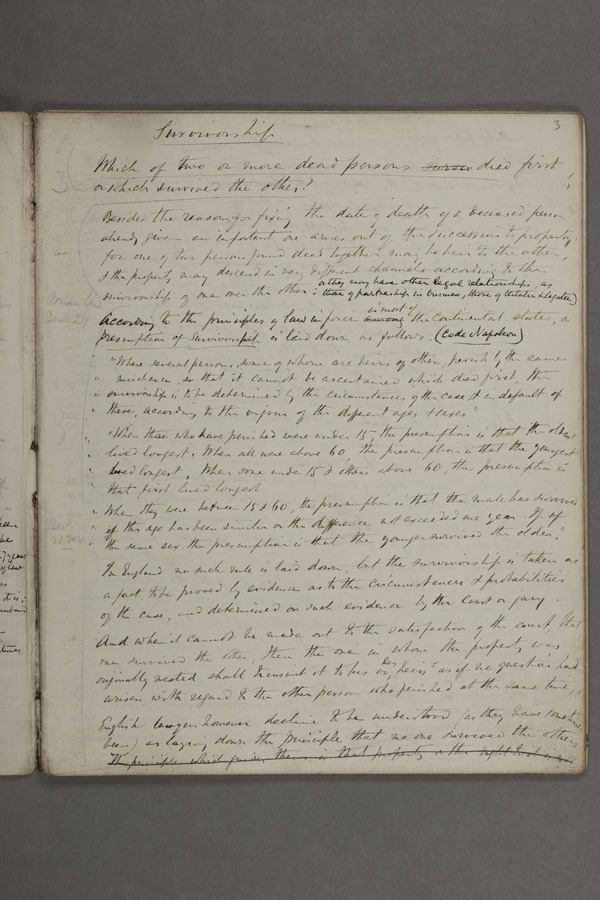 3
Survivorship
Which of two or more dead persons surviv died first,
or which survived the other?
Besides the reasons for fixing the date of death of a deceased person
already given an important one arises out of the succession to property;
for one of two persons found dead together may be heir to the other,
& the property may descend in very different channels according to the
survivorship of one over the other: or they may have other legal relationships, as
those of partnership in business, those of testator & legatee)
According to the principles of law in force in most of the Continental states, a
presumption of survivorship is laid down as follows. (Code Napoleon)
"Where several persons, some of whom are heirs of others, perish by the same
" mischance, so that it cannot be ascertained which died first, the
" survivorship is to be determined by the circumstances of the case & in default of
" these, according to the vigour of the different ages & sexes"
"When those who have perished were under 15 the presumption is that the oldest
" lived longest. When all were above 60, the presumption is that the youngest
" lived longest. When some under 15 & others above 60, the presumption is
" that first lived longest
" When they were between 15 & 60, the presumption is that the male has survived
" if the age has been similar or the difference not exceeded one year. If of
" the same sex the presumption is that the younger survived the older."
In England no such rule is laid down, but the survivorship is taken as
a fact to be proved by evidence as to the circumstances & probabilities
of the case, and determined on such evidence by the Court or jury.
And when it cannot be made out to the satisfaction of the court, that
one survived the other, then the one in whom the property was
originally vested shall transmit it to his or her heirs "as if no question had
arisen with regard to the other person who perished at the same time."
English lawyers however decline to be understood (as they have sometimes
been) as laying down the principle that no one survived the other.
The principle which guides them is that property or the right